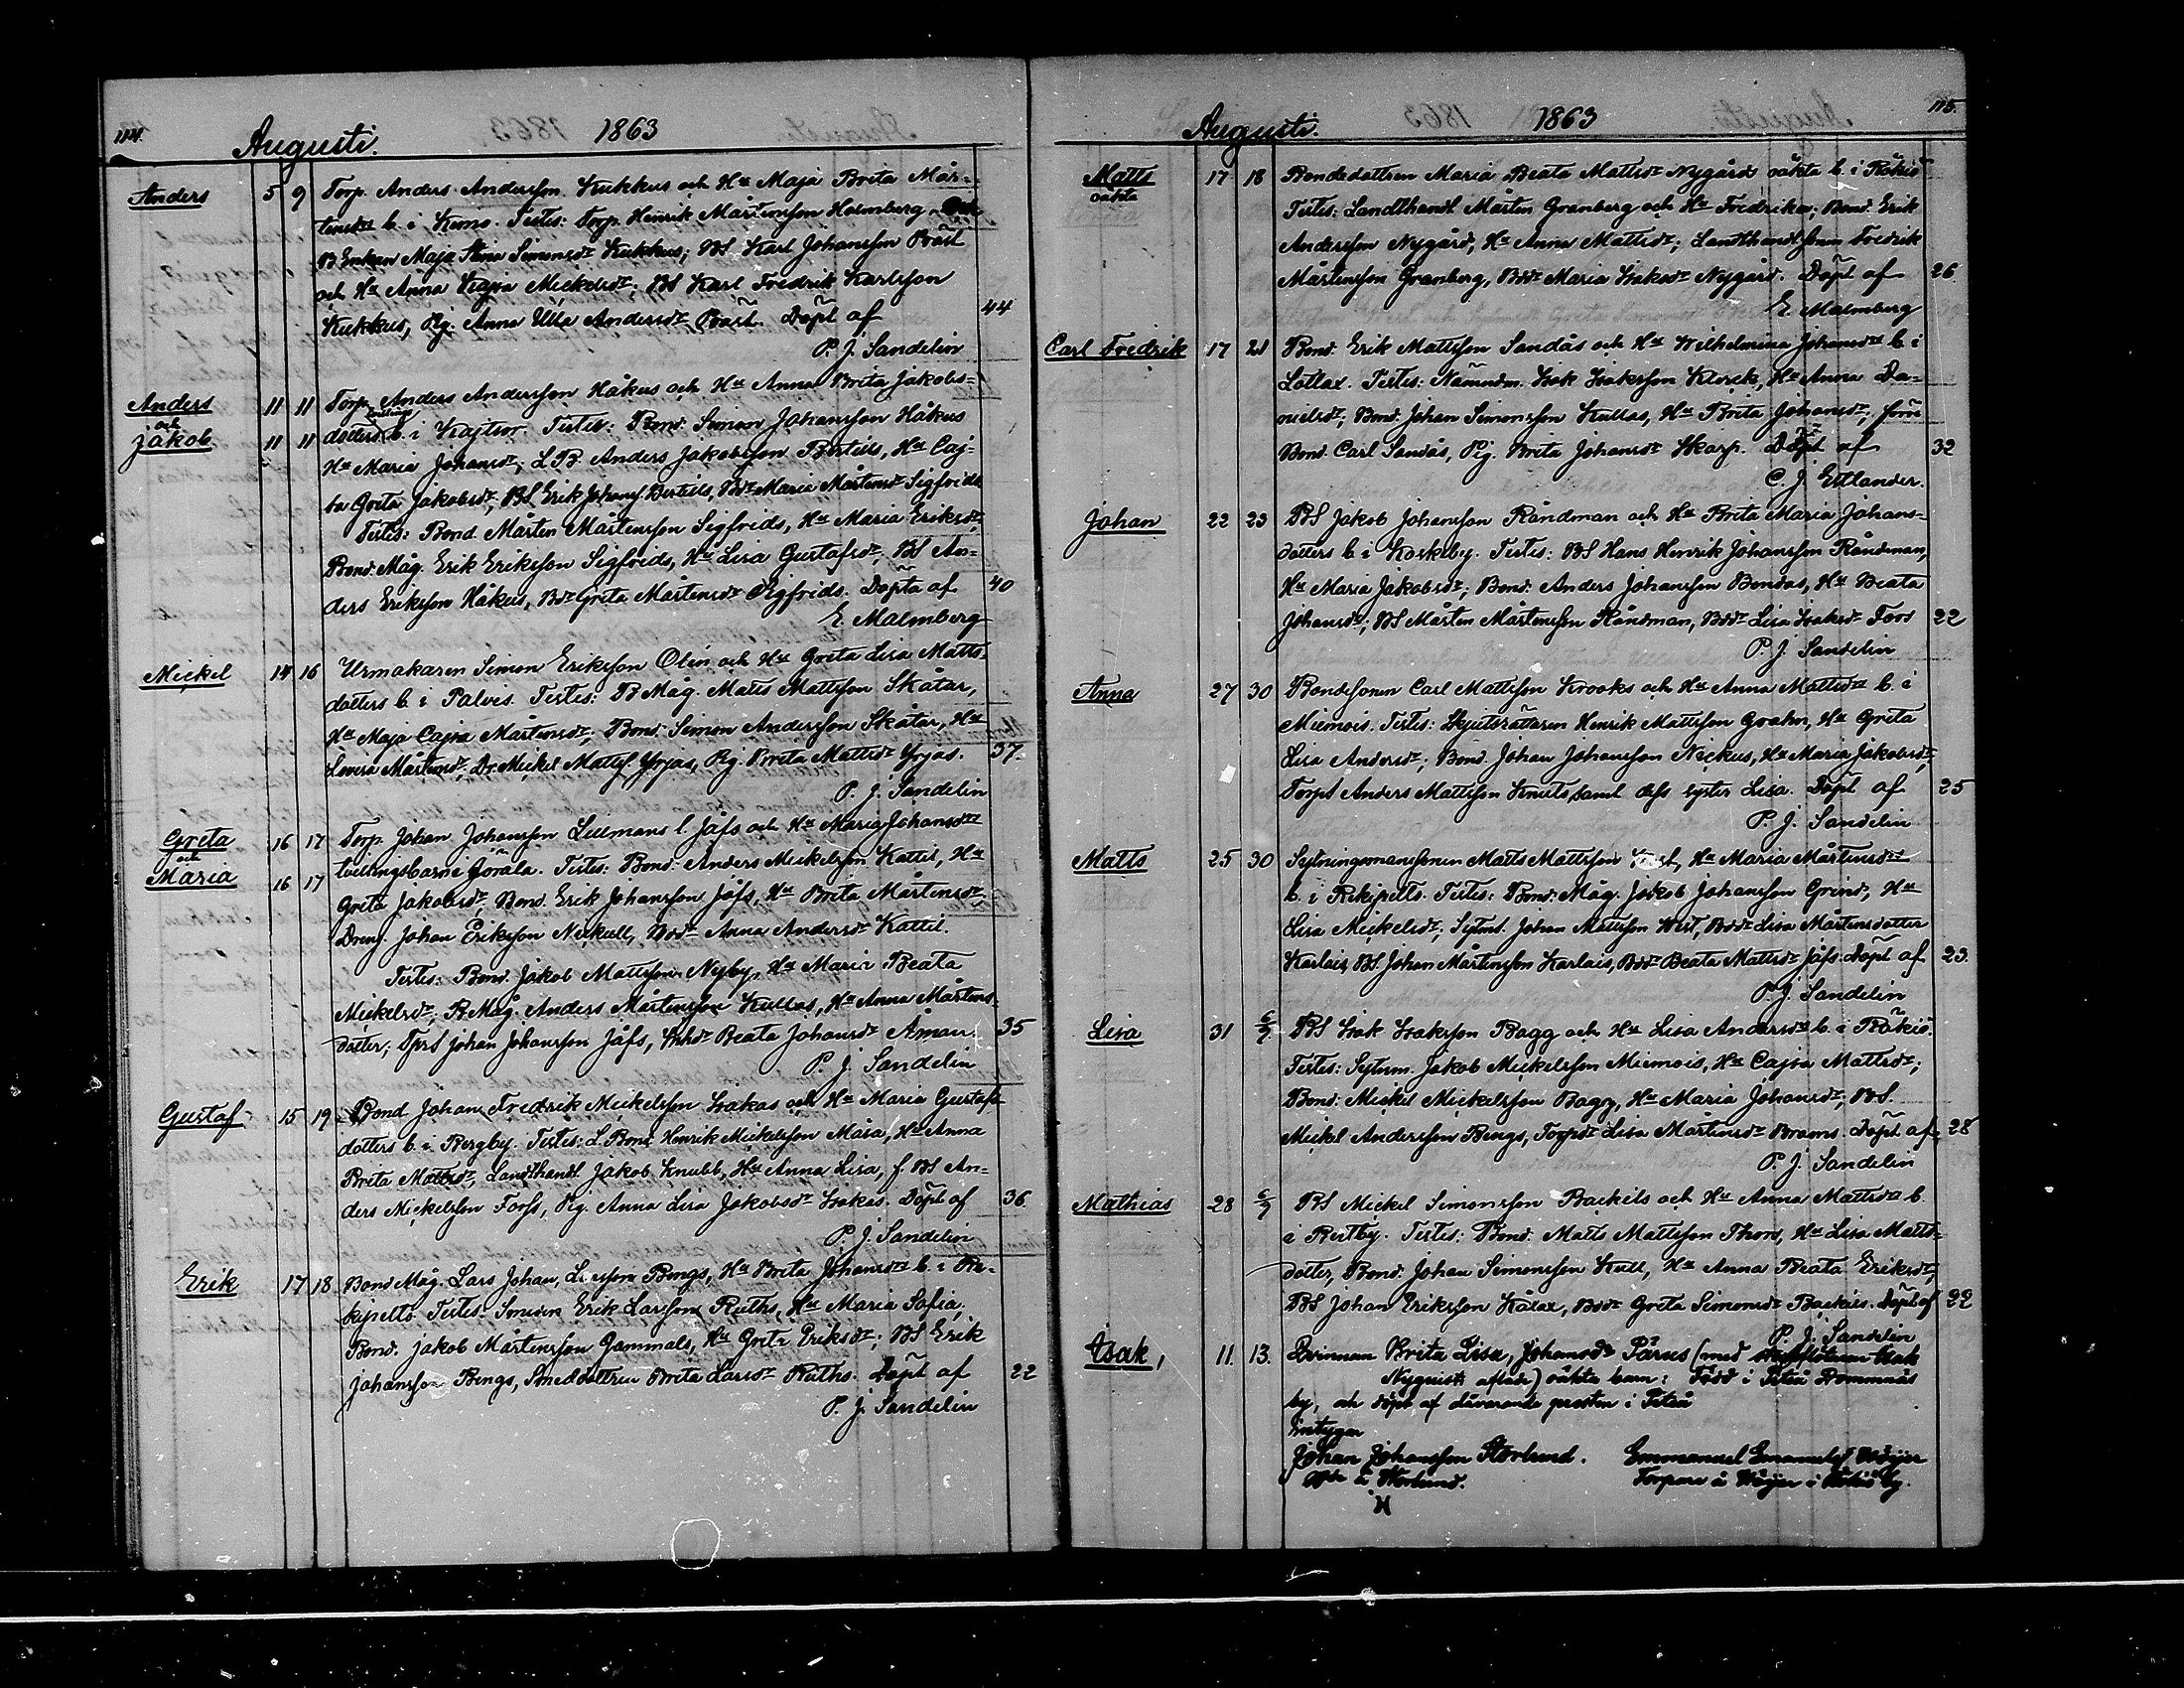 114.
Augusti. 1863
Anders 5 9 Torp. Anders Andersson Kukkus och Hu Maja Brita Mår-
tensdrs b. i Kimo. Testes: Torp. Henrik Mårtensson Holmberg
B Enkan Maja Stina Simonsdr Kukkus; BS Karl Johansson Bäst
och Hu Anna Kajsa Mickelsdr; BS Karl Fredrik Karlsson
Kukkus, Pig. Anna Ulla Andersdr Bäst. Döpt af 44
P. J. Sandelin
Anders 11 11 Torp. Anders Andersson Håkus och Hu Anna Brita Jakobs-
och
Jakob 11 11 dotters b. i Kajtsor. Testes: Bond. Simon Johansson Håkus
Hu Maria Johansdr, LB Anders Jakobsson Bertils, Hu Caj-
sa Greta Jakobsdr, BS Erik Johans. Bertils, Bdr Maria Mårtensdr Sigfrids
Testes: Bond Mårten Mårtensson Sigfrids, Hu Maria Eriksdr,
Bond. Måg. Erik Eriksson Sigfrids, Hu Lisa Gustafsdr, BS An-
ders Eriksson Håkus, Bdr Greta Mårtensdr Sigfrids. Döpta af 40
E. Malmberg
Mickel 14 16 Urmakaren Simon Eriksson Olin och Hu Greta Lisa Matts-
dotters b. i Palvis. Testes: B Måg. Matts Mattsson Skåtar,
Hu Maja Cajsa Mårtensdr; Bond. Simon Andersson Skåtar, Hu
Lovisa Mårtensdr, Dr. Mickel Mattsf Yrjas, Pig Brita Mattsdr Yrjas. 37.
P. J. Sandelin
Greta 16 17 Torp. Johan Johansson Lillmans l. Jåfs och Hu Maria Johansdrs
och
Maria 16 17 tvillingsbarn i Jörala. Testes: Bond. Anders Mickelsson Kattil, Hu
Greta Jakobsdr, Bond. Erik Johansson Jåfs, Hu Brita Mårtensdr
Dreng. Johan Eriksson Nickull, Bdr Anna Andersdr Kattil.
Testes: Bond. Jakob Mattsson Nyby, Hu Maria Beata
Mickelsdr; B Måg. Anders Mårtensson Kullas, Hu Anna Mårtens-
dotter; TprS Johan Johansson Jåfs, Beata Johansdr Åman 35
P. J. Sandelin
Gustaf 15 19 Bond Johan Fredrik Mickelsson Isakas och Hu Maria Gustafs-
dotters b. i Bergby. Testes: L Bond Henrik Mickelsson Masa, Hu Anna
Brita Mattsdr, Landthandl. Jakob Knubb, Hu Anna Lisa, f. BS An-
ders Mickelsson Forss, Pig. Anna Lisa Jakobsdr Isakas. Döpt af 36.
P. J. Sandelin
Erik 17 18 Bond Måg. Lars Johan Larsson Bengs, Hu Brita Johansdrs b. i Re-
kipelto. Testes: Smeden Erik Larsson Ruths, Hu Maria Sofia,
Bond. Jakob Mårtensson Gammals, Hu Greta Eriksdr; BS Erik
Johansson Bengs, Smeddottren Brita Larsdr Ruths. Döpt af 22
P. J. Sandelin
115.
Augusti. 1863
Matts 17 18 Bondedottren Maria Beata Mattsdr Nygårds oäkta b. i Rökiö
oäkta
Testes: Landthandl. Mårten Granberg och Hu Fredrika; Bond. Erik
Andersson Nygård, Hu Anna Mattsdr; Landthandl.sonen Fredrik
Mårtensson Granberg, Bdr Maria Isaksdr Nygård. Döpt af 26.
E. Malmberg
Carl Fredrik 17 21 Bond. Erik Mattsson Sandås och Hu Wilhelmina Johansdrs b. i
Lotlax. Testes: Nämndm. Isak Isaksson Klock, Hu Anna Da-
nielsdr; Bond. Johan Simonsson Kullas, Hu Brita Johansdr; förre
Bond. Carl Sandås, Pig. Brita Johansdr Skarp. Döpt af 32
C. J. Estlander.
Johan 22 23 BS Jakob Johansson Råndman och Hu Brita Maria Johans-
dotters b. i Koskeby. Testes: BS Hans Henrik Johansson Råndman,
Hu Maria Jakobsdr; Bond. Anders Johansson Bondas, Hu Beata
Johansdr; BS Mårten Mårtensson Råndman, Bdr Lisa Isaksdr Fors 22
P. J. Sandelin
Anna 27 30 Bondesonen Carl Mattsson Krooks och Hu Anna Mattsdrs b. i
Miemois. Testes: Skjutsrättaren Henrik Mattsson Grahn, Hu Greta
Lisa Andersdr; Bond. Johan Johansson Nickus, Hu Maria Jakobsdr,
TorpS Anders Mattsson Knuts samt dess syster Lisa. Döpt af 25
P. J. Sandelin
Matts 25 30 Sytningsmanssonen Matts Mattsson, Hu Maria Mårtensdrs
b. i Rekipelto. Testes: Bond. Måg. Jakob Johansson Grind, Hu
Lisa Mickelsdr; Sytms. Johan Mattsson West, Bdr Lisa Mårtensdotter
Karlais, BS. Johan Mårtensson Karlais, Bdr Beata Mattsdr Jåfs. Döpt af 23.
P. J. Sandelin
Lisa 31 6/9 BS Isak Isaksson Bagg och Hu Lisa Andersdrs b. i Rökiö.
Testes: Sytnm. Jakob Mickelsson Miemois, Hu Cajsa Mattsdr;
Bond. Mickel Mickelsson Bagg, Hu Maria Johansdr, BS.
Mickel Andersson Bengs, Torpdr Lisa Mårtensdr Brams. Döpt af 28
P. J. Sandelin
Mathias 28 6/9 BS Mickel Simonsson Backils och Hu Anna Mattsdrs b.
i Bertby. Testes: Bond. Matts Mattsson Thors, Hu Lisa Matts-
dotter, Bond. Johan Simonsson Kull, Hu Anna Beata Eriksdr,
BS Johan Eriksson Kålax, Bdr Greta Simonsdr Backils. Döpt af 22
P. J. Sandelin
Isak, 11. 13. Qvinnan Brita Lisa Johansdr Pärus (med Isak
Nyquist aflade) oäkta barn; Född i Piteå
by, och döpt af dåvarande presten i Piteå
Intygar
Johan Johansson Storlund. Emmanuel Emanuelsf
å Storlund. Torpare å i Rökiö by.